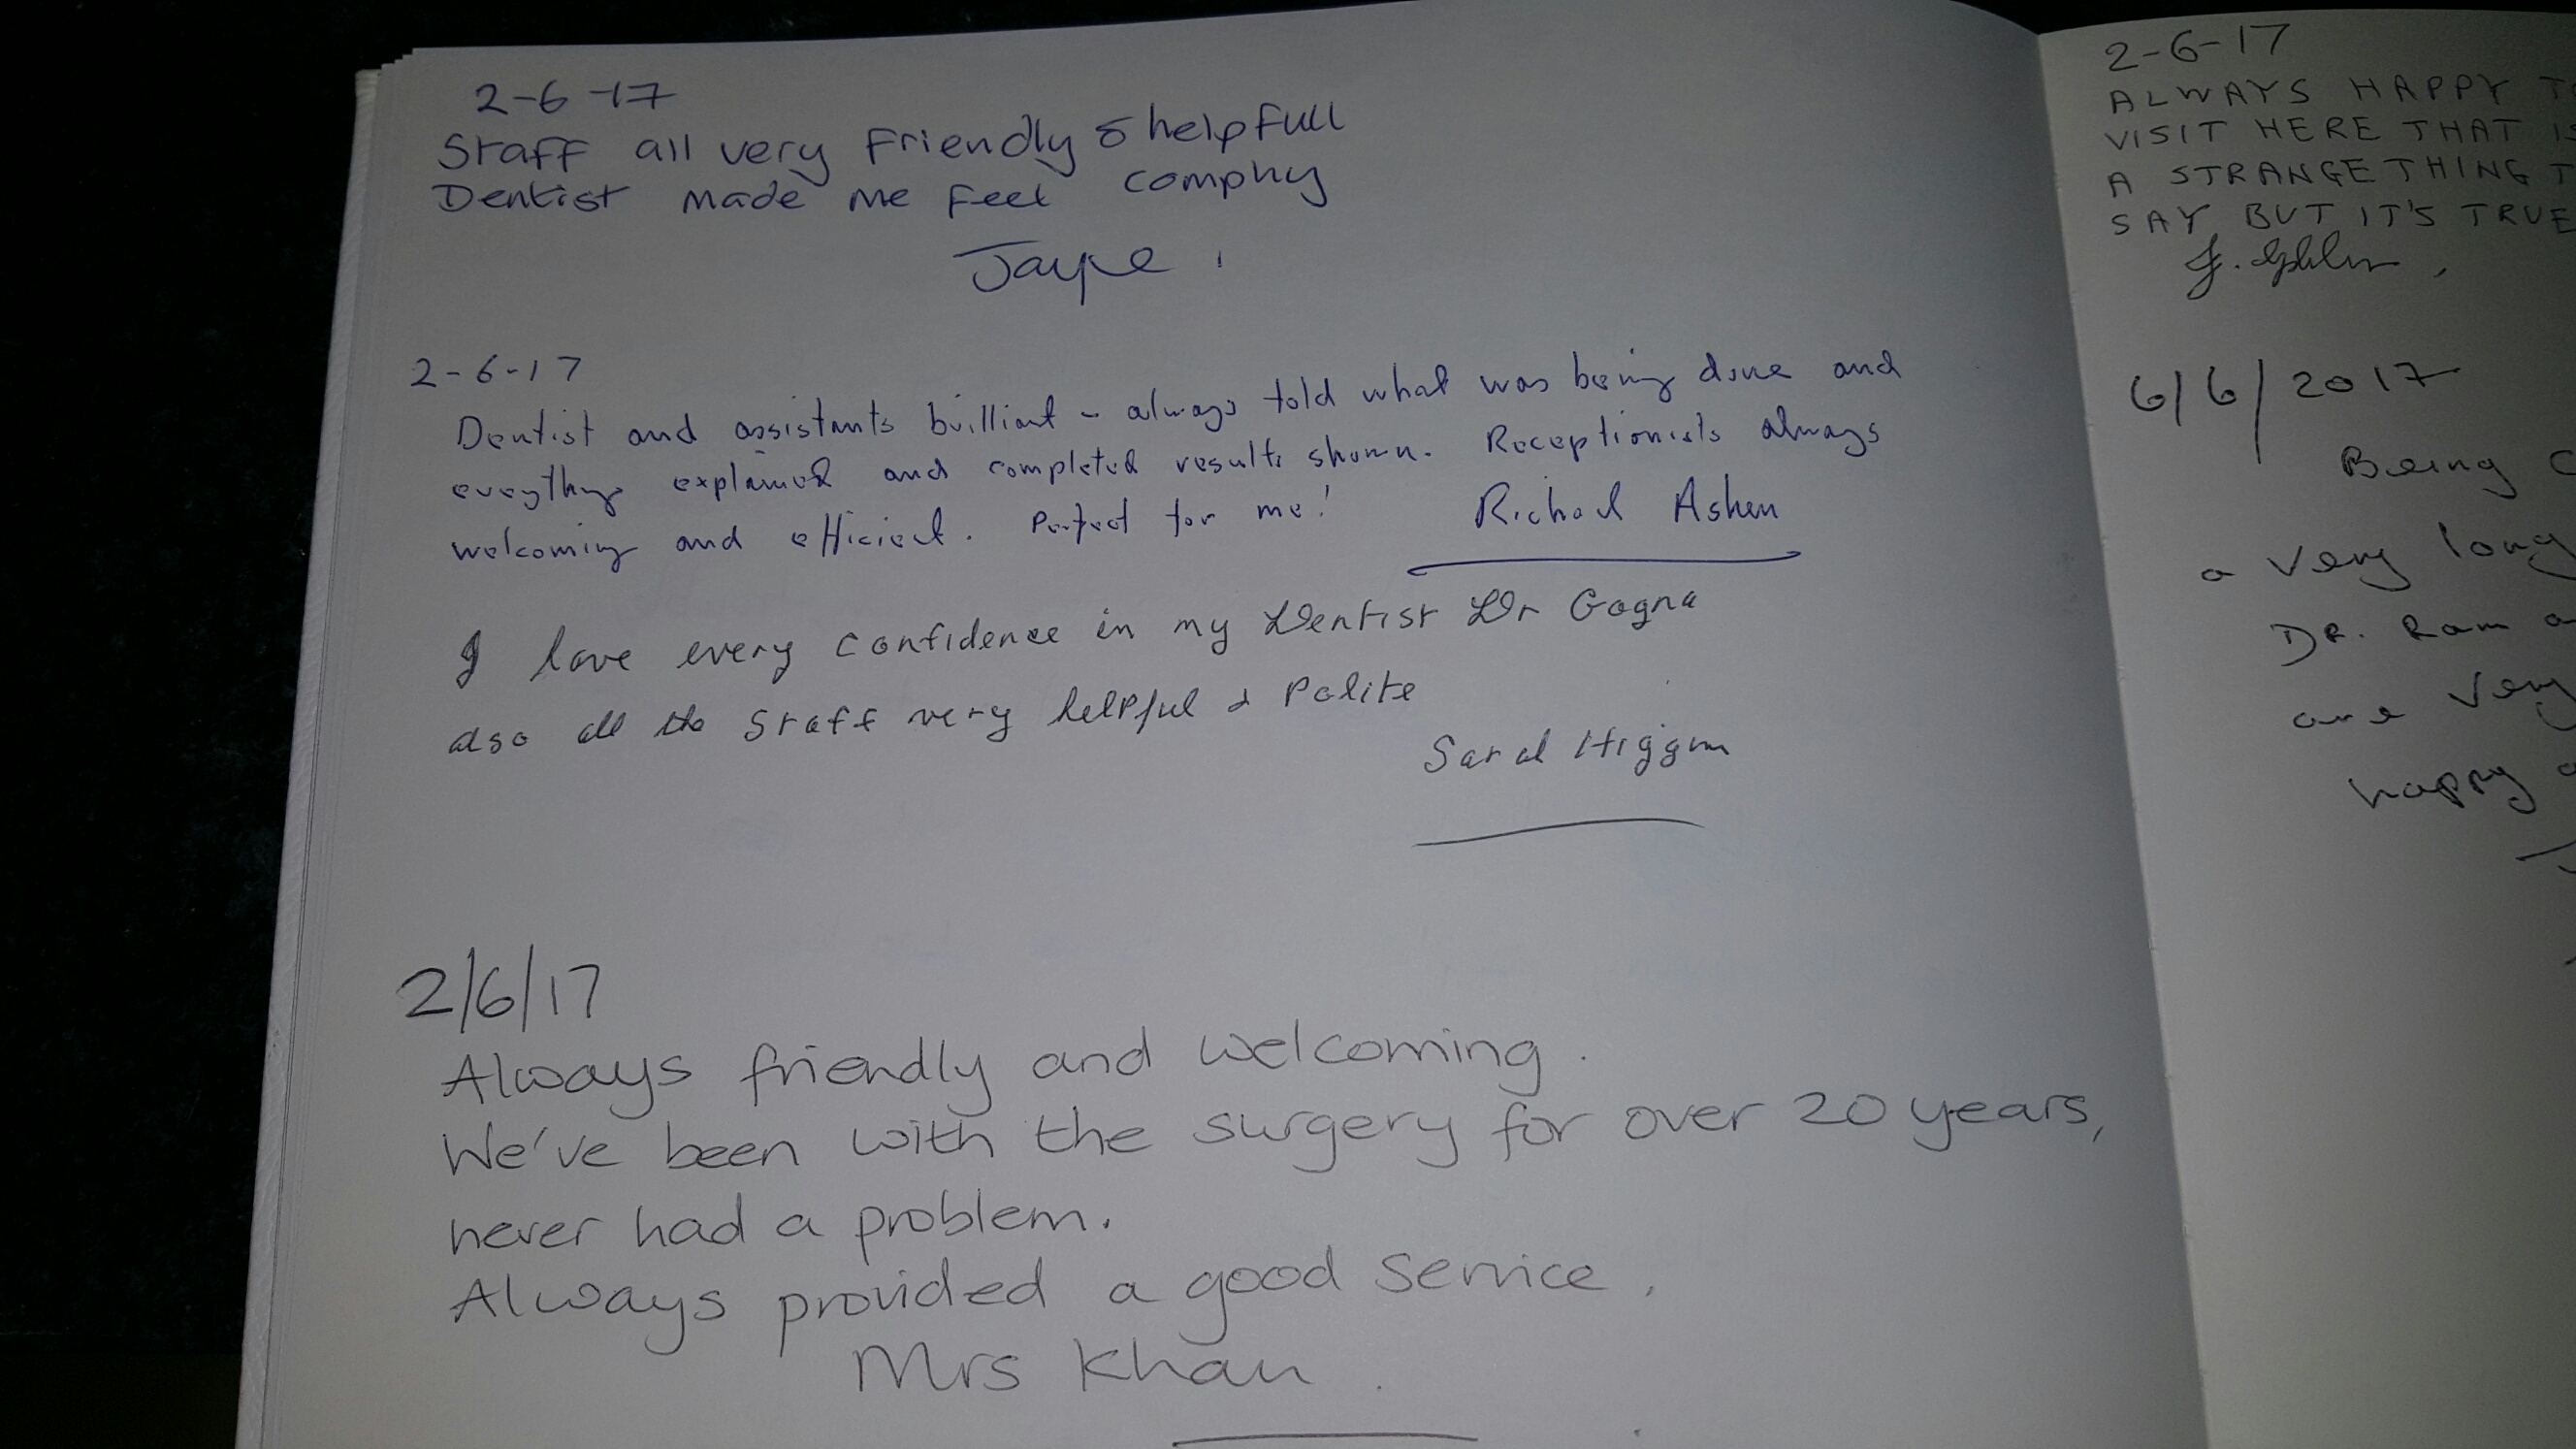 2-6-17
Staff all very friendly & helpfull
Dentist made me feel comphy
Jayne
2-6-17
Dentist and assistants brilliant - always told what was being done and
eveything explained and completed results shown. Receptionists always
welcoming and efficient. Perfect for me!
Richard
I have every confidence in my Dentist Dr Gogna
also all the Staff very helpful & Polite
Sarah
2/6/17
Always friendly and welcoming.
We've been with the surgery for over 20 years,
never had a problem.
Always provided a good service.
Mrs Khan.
2-6-17
ALWAYS HAPPY
VISIT HERE THAT
A STRANGE THING
SAY BUT IT'S TRUE
J.
6/6/2017
Being
a very long
DR. Ram
are very
happy